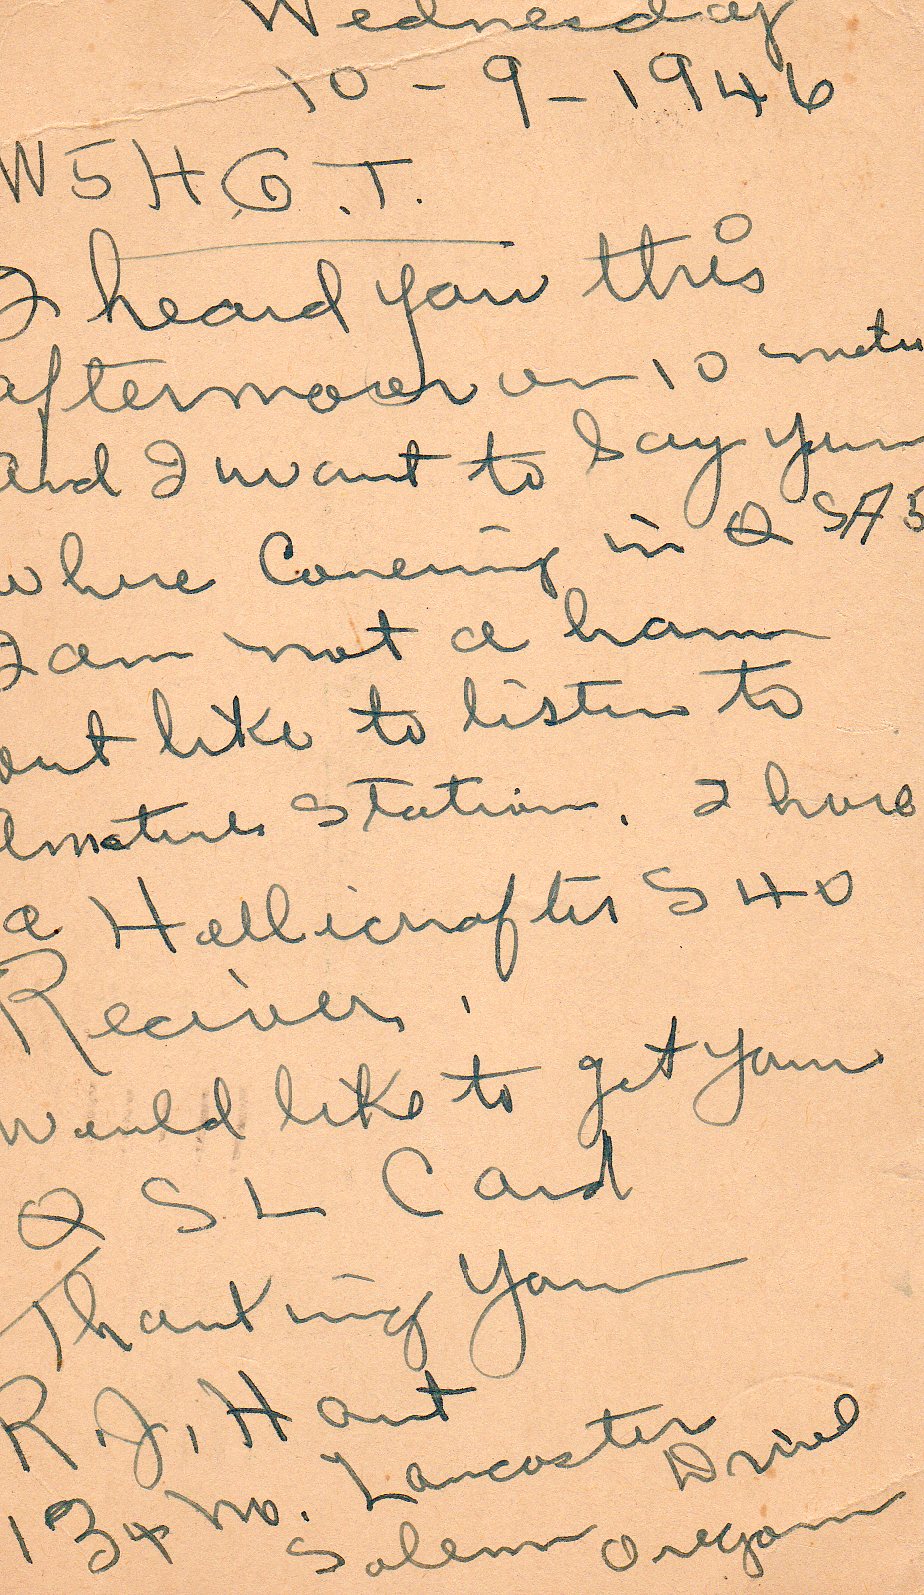 Wednesday
10-9-1946
W5HGT.
I heard you this
afternoon on 10 meter
and I want to say your
where comeing in QSA5
I am not a ham
but like to listen to
Amature Station. I have
a Hallicrafter S40
Reciver.
would like to get your
QSL Card
Thanking You
R.J. Hart
134 No. Lancaster
Drive
Salem Oregon